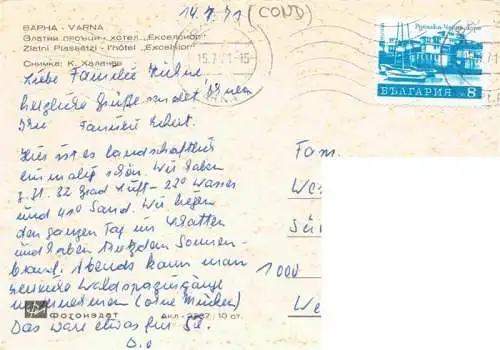 14.7.71 (COND)
ВАРНА - VARNA
Златни пясъци - хотел „Екселсиор"
Zlatni Piassatzi - l'hôtel „Excelsior"
Снимка: К. Халачев
15.7.71-15
БЪЛГАРИЯ 8
Liebe Familie
herzliche Grüße sendet Ihnen
Ihre Familie
Hier ist es landschaftlich
einmalig schön. Wir haben
z. Zt. 32 Grad Luft - 22° Wasser
und 41° Sand. Wir liegen
den ganzen Tag im Schatten
und haben trotzdem Sonnen-
brand. Abends kann man
herrliche Waldspaziergänge
unternehmen (ohne Mücken)
Das wäre etwas für Sie.
D.O
Fam.
We
1000
We
Фотоиздат
Акл - 2237 / 10 от.